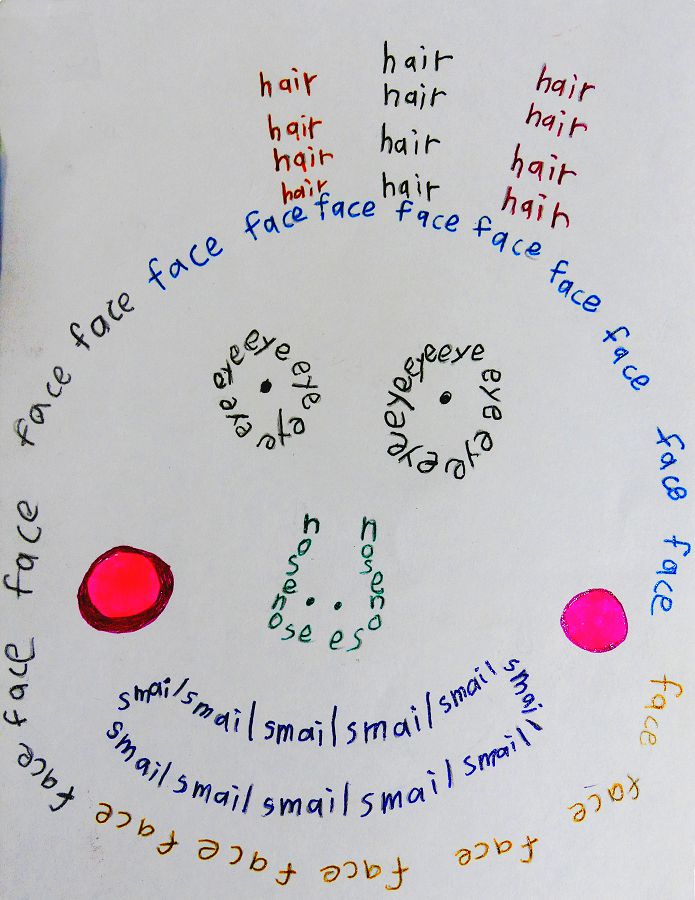 hair hair hair
hair hair hair
hair hair hair
hair hair hair
face face face face face face face face face face face face face face face face face face face face face
eye eye eye eye eye
eye eye eye eye eye eye eye
nose nose
nose nose
smail smail smail smail smail smail
smail smail smail smail smail